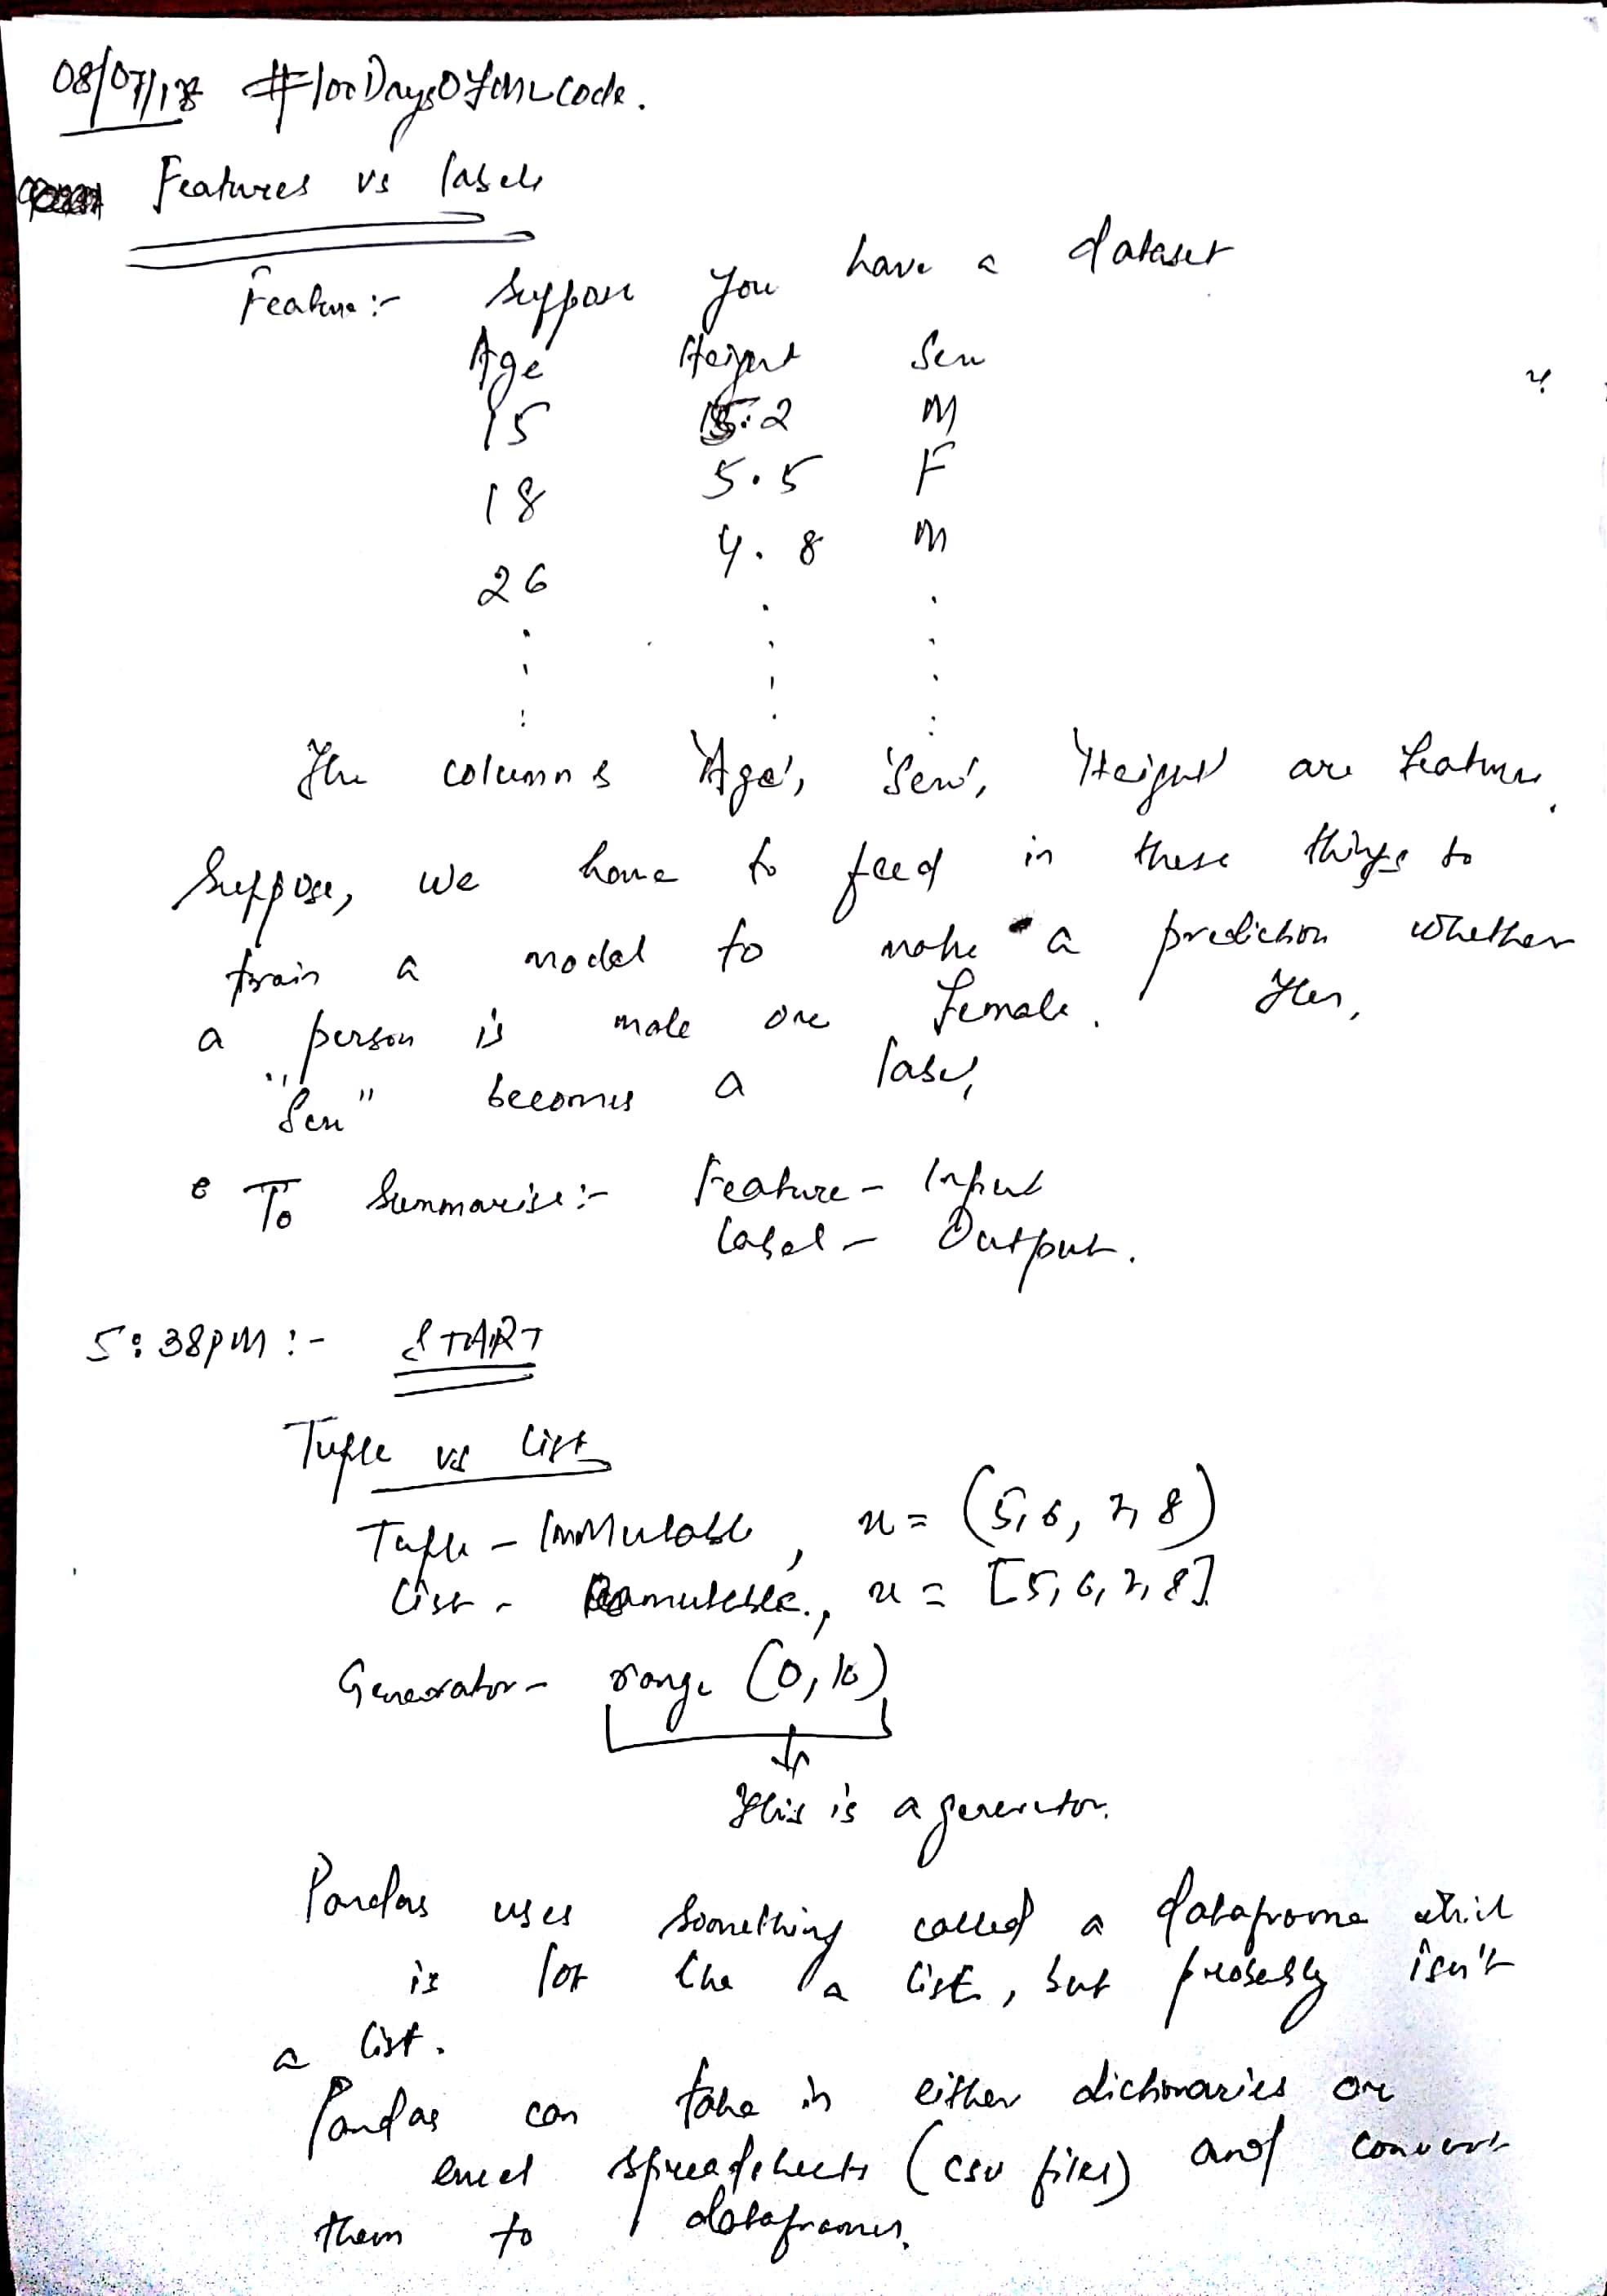 08/07/18 #100DaysOfMLCode.
Features vs labels
Feature:- Suppose you have a dataset
Age Height Sex
15 5.2 M
18 5.5 F
26 4.8 M
The columns 'Age', 'Sex', 'Height' are features.
Suppose, we have to feed in these things to
train a model to make a prediction whether
a person is male or female. Here,
"Sex" becomes a label,
To Summarise:- Feature - Input
Label - Output.
5:38PM :- START
Tuple vs List
Tuple - ImMutable, x = (5,6,7,8)
List - mutable., x = [5,6,7,8]
Generator - range (0,10)
This is a generator.
Pandas uses something called a dataframe which
is lot like a list, but probably isn't
a list.
Pandas can take in either dictionaries or
excel spreadsheets (csv files) and convert
them to dataframes.